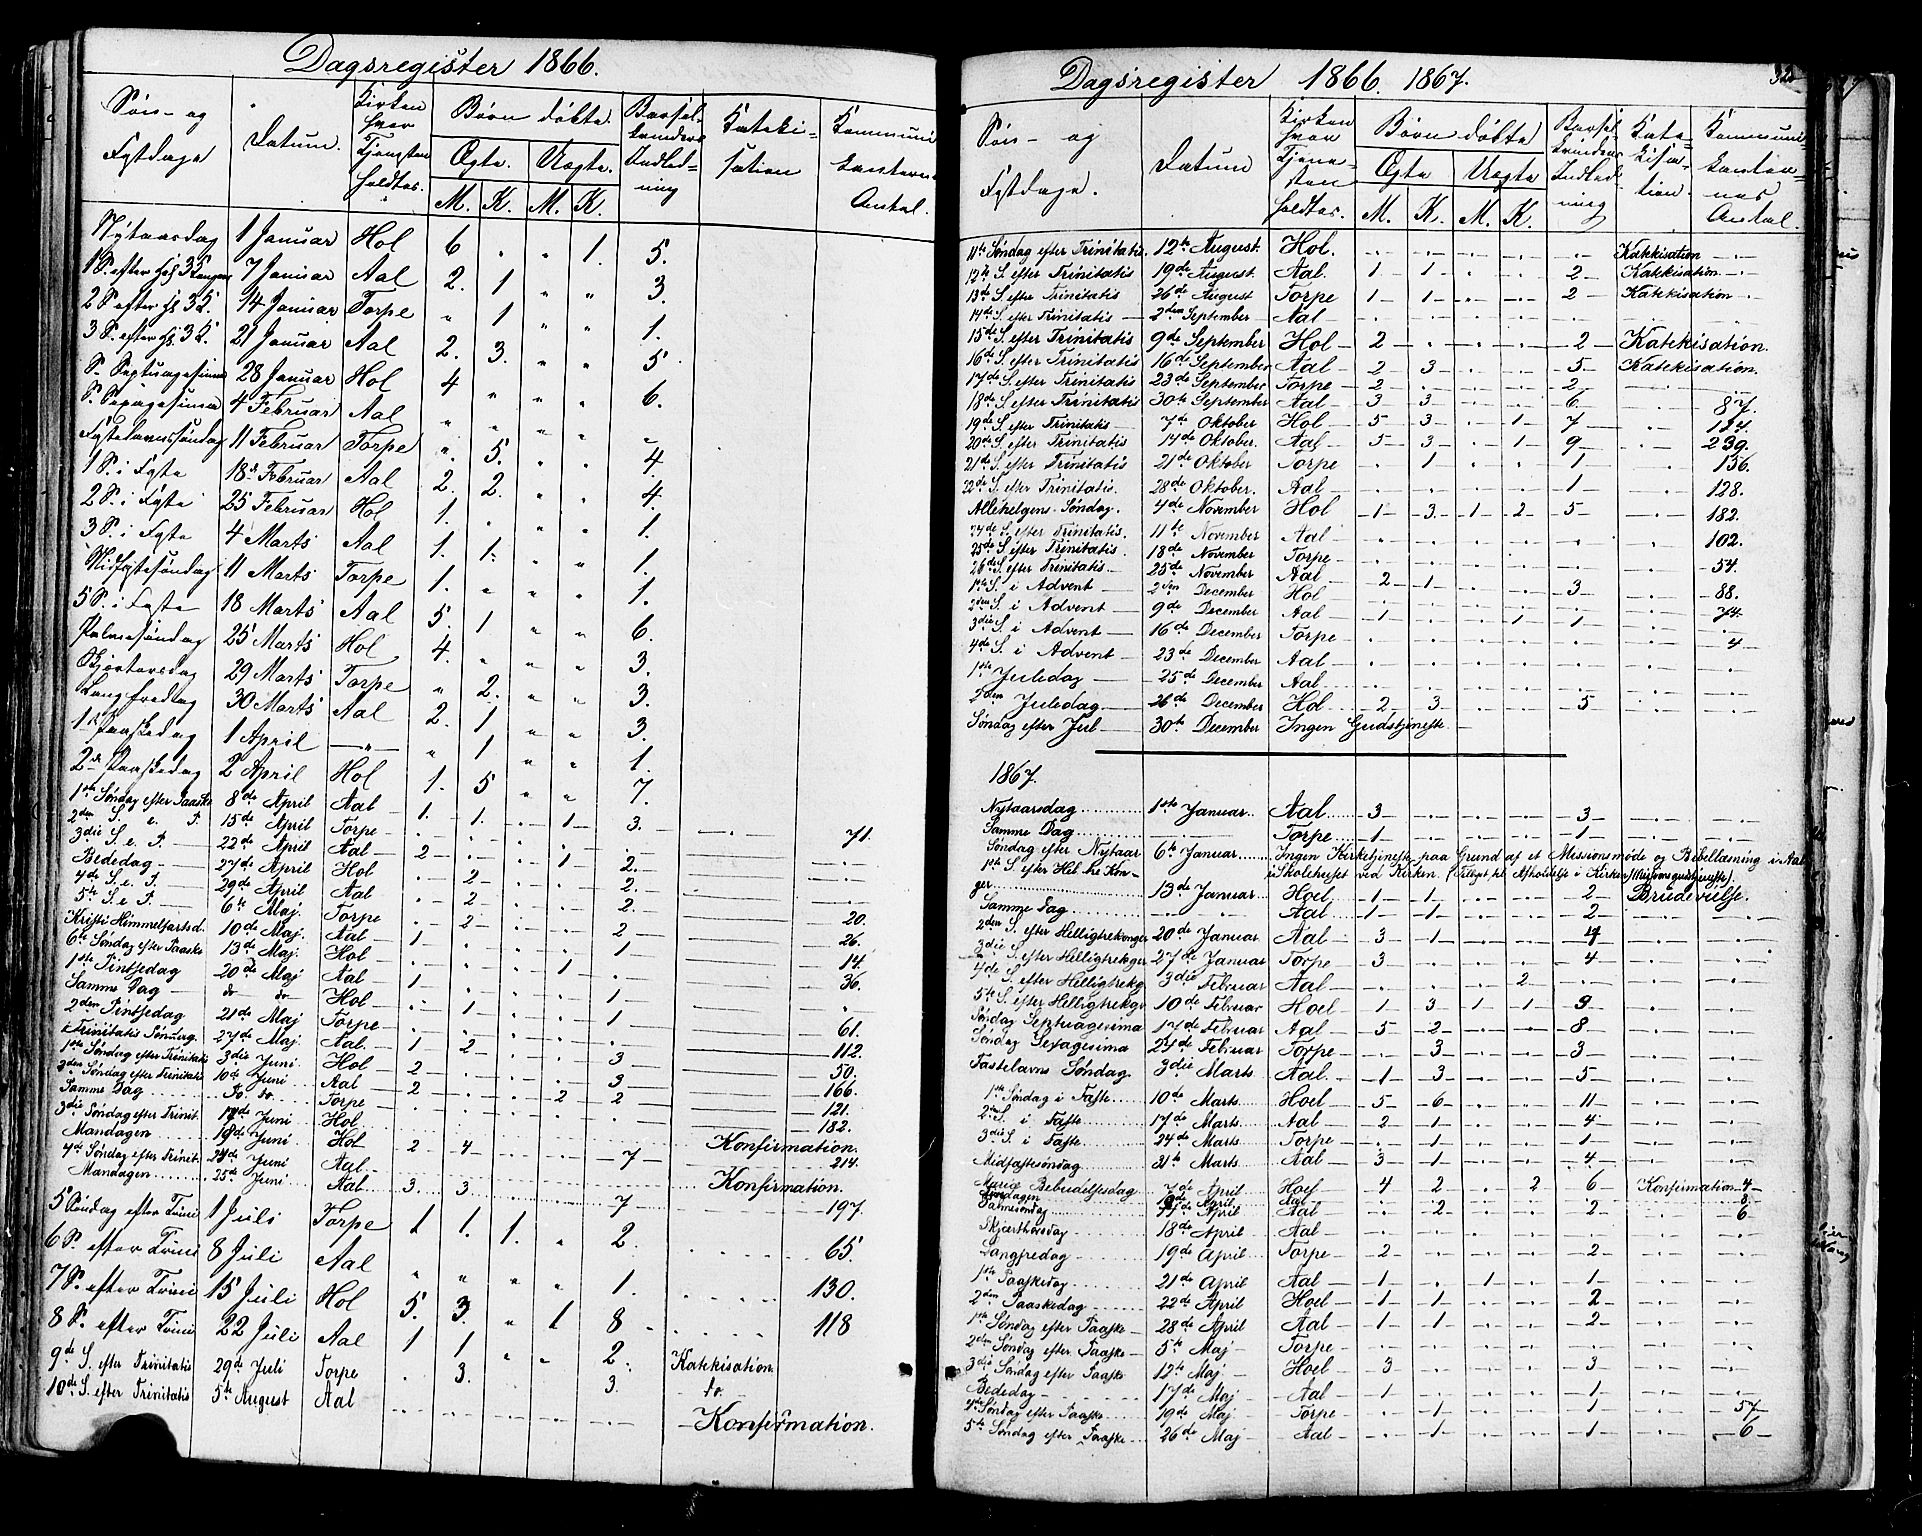 Dagsregister 1866.
Søn- og Festdage | Datum. | Kirken hvor Tjenesten holdtes. | Børn døbte. Ægte. M. K. Uægte. M. K. | Barselkvinders Indledning | Katekisation | Kommunikanternes Antal.
Nytaarsdag 1 Januar Hol 6 " " 1. 5.
1 S. efter H. 3 Konger 7 Januar Aal 2. 1 " " 3.
2 S. efter H. 3 K. 14 Januar Torpe " 1 " " 1.
3 S. efter H. 3 K. 21 Januar Aal 2. 3. " " 5
S. Septuagesima 28 Januar Hol 4 " " " 6.
S. Sexagesima 4 Februar Aal " " " "
Fastelavnssøndag 11 Februar Torpe " 5. " " 4.
1 S. i Faste 18 Februar Aal 2. 2. " " 4.
2 S. i Faste 25 Februar Hol 1. " " " 1.
3 S. i Faste 4 Marts Aal 1. 1. " " 1.
Midfastesøndag 11 Marts Torpe 1. " " " 1.
5 S. i Faste 18 Marts Aal 5. 1 " " 6.
Palmesøndag 25 Marts Hol 4. " " " 3.
Skjertorsdag 29 Marts Torpe " 2. " " 3.
Langfredag 30 Marts Aal 2. 1 " " 3.
1ste Paaskedag 1 April — " — " 1 " " 1.
2den Paaskedag 2 April Hol 1. 5 " " 7.
1ste Søndag efter Paaske 8de April Aal 1. 1. . 1 3. 71.
2den S. e. P. 15de April Torpe
3die S. e. P. 22de April Aal 2 . . 1 2.
Bededag 27de April Hol . 2 . . 2.
4de S. e. P. 29de April Aal . 2 . . 2. 20.
5te S. e. P. 6te Maj. Torpe . 2 . . 2 26.
Kristi Himmelfartsd. 10de Maj. Aal 1 . . . 1 14.
6te Søndag efter Paaske 13de Maj. Hol . . . 1 36.
1ste Pintsedag 20de Maj Aal 1 . . . 1
Samme Dag do do Hol . 1 . . 1 61.
2den Pintsedag 21de Maj Torpe 112.
Trinitatis Søndag. 27de Maj. Aal. 1 2 . . 3 50.
1ste Søndag efter Trinitatis 3die Juni. Hol 2 . . . 3 166.
2den Søndag efter Trinitatis 10de Juni Aal 2 . . 2 2 121.
Samme Dag do do. Torpe 182.
3die Søndag efter Trinit. 17de Juni Hol
Mandagen 18de Juni Hol 2 4 . . 7 Konfirmation.
4de Søndag efter Trinit. 24de Juni Aal 214.
Mandagen 25de Juni Aal 3. 3. . . 7 Konfirmation. 197.
5 Søndag efter Trini 1 Juli Torpe 1 1. 1. " 2. 65.
6 S. efter Trini 8 Juli Aal " " " " 1. 130.
7 S. efter Trini 15 Juli Hol 5. 3. " 1 8 118
8 S. efter Trini 22 Juli Aal 1 1 " " 2. Katekisation.
9de S. efter Trinitatis 29de Juli Torpe . 3. . . 3. do.
10de S. efter Trinitatis 5te August Aal Konfirmation.
Dagsregister 1866. 1867.
Søn- og Festdage. | Datum | Kirken hvor Tjenesten holdtes. | Børn døbte Ægte M. K. Uægte M. K. | Barselkvinders Indledning | Katekisation. | Kommunikanternes Antal.
11te Søndag efter Trinitatis 12te August. Hol. Katekisation
12te S. efter Trinitatis 19de August. Aal. 1 1 . . 2 Katekisation
13de S. efter Trinitatis 26de August Torpe 1 1 . . 2 Katekisation
14de S. efter Trinitatis 2den September Aal
15de S. efter Trinitatis 9de September Hol 2 . . . 2 Katekisation.
16de S. efter Trinitatis 16de September Aal 2 3 . . 5 Katekisation.
17de S. efter Trinitatis 23de September Torpe 2 . . . 2
18de S. efter Trinitatis 30te September Aal 3 3 . . 6 87.
19de S. efter Trinitatis 7de Oktober Hol 5 3 . 1 7 127.
20de S. efter Trinitatis 14de Oktober. Aal 5 3 . 1 9 239.
21de S. efter Trinitatis 21de Oktober Torpe . 1 . . 1 156.
22de S. efter Trinitatis. 28de Oktober. Aal 1 128.
Allehelgens Søndag. 4de November Hol 1 3 1 2 5 182.
24de S. efter Trinitatis. 11te November Aal 102.
25de S. efter Trinitatis. 18de November Torpe 54.
26de S. efter Trinitatis. 25de November Aal 2 1 . . 3 88.
1ste S. i Advent 2den December Hol 74.
2den S. i Advent 9de December Aal 1 . . 1 1
3die S. i Advent 16de December Torpe 4
4de S. i Advent 23de December Aal
1ste Juledag 25de December Aal
2den Juledag 26de December Hol 2 3 . . 5
Søndag efter Jul 30te December Ingen Gudstjeneste
1867.
Nytaarsdag 1ste Januar Aal 3 . . . 3
Samme Dag Torpe 1 . . . 1
Søndag efter Nytaar 6te Januar Ingen Kirketjeneste paa Grund af et Missionsmøde og Bibellæsning i Aal
i Skolehuset ved Kirken.
1ste S. efter Hel. tre Konger 13de Januar Hoel 1 1 . . 2 Brudevielse.
Samme Dag Aal 1 1 . . 2
2den S. efter Helligtrekonger 20de Januar Aal 3 1 . . 4
3die S. efter Helligtrekger 27de Januar Torpe 3 . . . 4
4de S. efter Helligtrekg 3die Februar Aal . . . 2 .
5te S. efter Helligtrekgr 10de Februar Hoel 1 3 1 1 9
Søndag Septuagesima 17de Februar Aal 5 2 . . 8
Søndag Sexagesima 24de Februar Torpe . 3 . . 3
Fastelavns Søndag 3die Marts Aal 1 3 . . 5
1ste Søndag i Faste 10de Marts Hoel 5 6 . . 11
2den S. i Faste 17de Marts Aal 2 1 . . 4
3die S. i Faste 24de Marts Torpe . 1 . . 1
Midfastesøndag 31te Marts Aal 3 1 . . 4
Mariæ Bebudelsesdag 7de April Hoel 4 2 . 2 6 Konfirmation. 4
Palmesøndag April Aal . 2 . . 2 6
Skjærthorsdag 18de April Aal
Langfredag 19de April Torpe 2 . . . 2
1ste Paaskedag 21de April Aal 1 . 1 . 1
2den Paaskedag 22de April Hoel 1 1 . . 2
1ste Søndag efter Paaske 28de April Aal 1 1 . . 2
2den Søndag efter Paaske 5te Maj Torpe
3die Søndag efter Paaske 12te Maj Hoel 3 . . . 3
Bededag 17de Maj Aal 1 . . . 1
4de Søndag efter Paaske 19de Maj Torpe . 1 . . 1 57
5te Søndag efter Paaske 26de Maj Aal . 1 . . 1 6